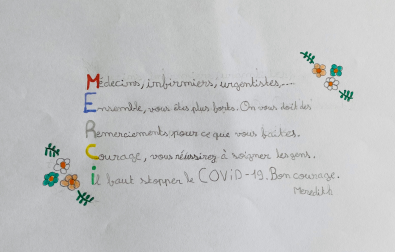 Médecins, infirmiers, urgentistes....
Ensemble, vous êtes plus forts. On vous doit des
Remerciements pour ce que vous faites.
Courage, vous réussirez à soigner les gens.
il faut stopper le COViD-19. Bon courage.